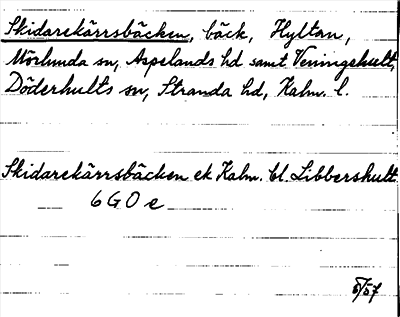 Skidarekärrsbäcken, bäck, Hyltan,
Mörlunda sn, Aspelands hd samt Veningehult,
Döderhults sn, Stranda hd, Kalm. l.
Skidarekärrsbäcken ek Kalm. bl. Libbershult
6 G O e
5/57